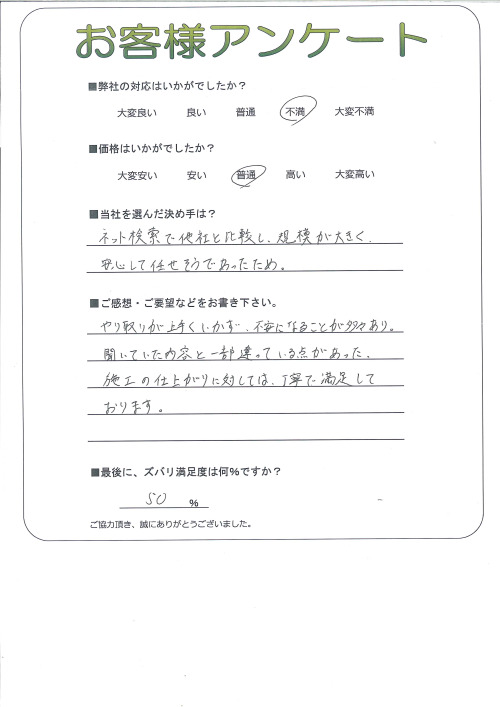 お客様アンケート
■弊社の対応はいかがでしたか？
大変良い 良い 普通 不満 大変不満
■価格はいかがでしたか？
大変安い 安い 普通 高い 大変高い
■当社を選んだ決め手は？
ネット検索で他社と比較し、規模が大きく、
安心して任せそうであったため。
■ご感想・ご要望などをお書き下さい。
やり取りが上手くいかず、不安になることが多々あり。
聞いていた内容と一部違っている点があった、
施工の仕上がりに対しては、丁寧で満足して
おります。
■最後に、ズバリ満足度は何%ですか？
50 %
ご協力頂き、誠にありがとうございました。